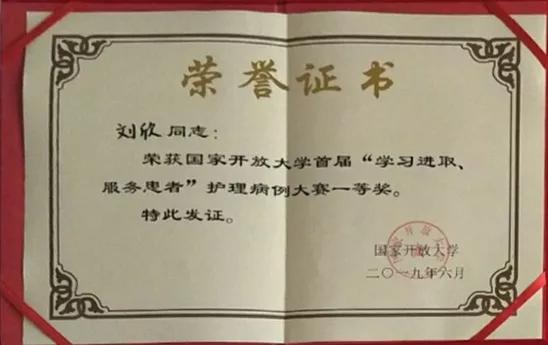 荣誉证书
刘欣 同志：
荣获国家开放大学首届“学习进取、
服务患者”护理病例大赛一等奖。
特此发证。
国家开放大学
二〇一九年六月